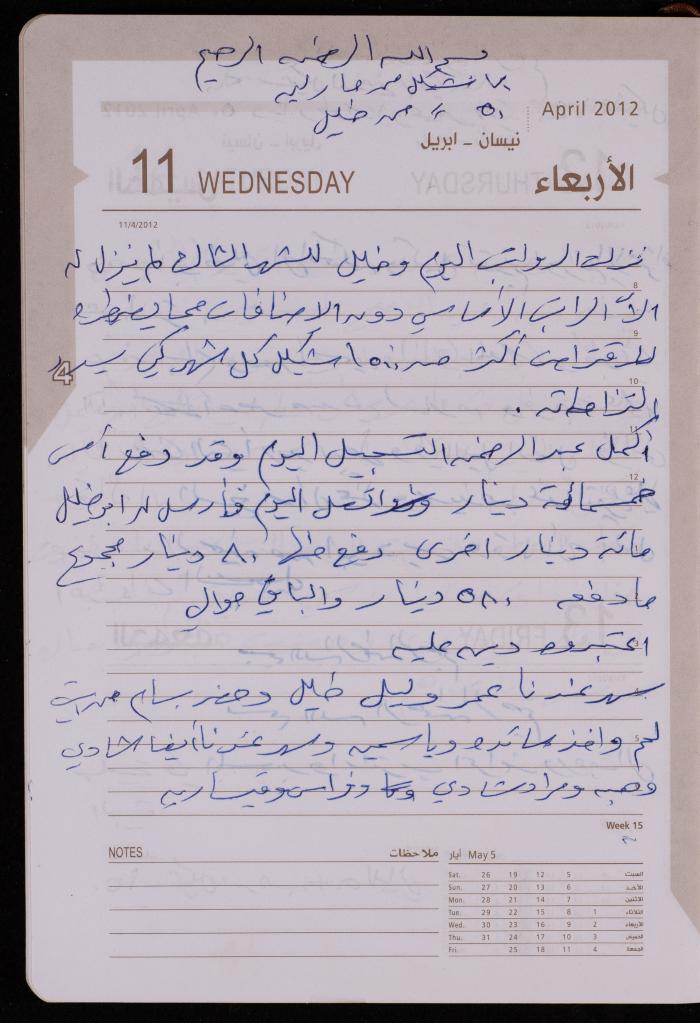 بسم الله الرحمن الرحيم
شيكل من مارليه
50 = من خليل
April 2012
نيسان - ابريل
11 WEDNESDAY الأربعاء
11/4/2012
نزلت الرواتب اليوم وخليل للشهر الثالث لم ينزل له
8
الا الراتب الأساسي دون الاضافات مما يضطره
9
للاقتراض أكثر من 1500 شيكل كل شهر كي يسدد
4
10
التزاماته .
11
أكمل عبد الرحمن التسجيل اليوم وقد دفع أمس
12
خمسمائة دينار واكمل اليوم وأرسل له ابو خليل
مائة دينار اخرى دفع منها 80 دينار مجموع
ما دفعه 580 دينار والباقي حوالي
3
اعتبروه دين عليه
4
سهر عندنا عمر وليل خليل وحضر بسام
5
لحم واخذ مائده وياسمين وسهر عندنا أيضا شادي
وهبه ومراد شادي وفراس وقيسارية
Week 15
NOTES ملاحظات
أيار May 5
Sat. 26 19 12 5 السبت
Sun. 27 20 13 6 الأحد
Mon. 28 21 14 7 الاثنين
Tue. 29 22 15 8 1 الثلاثاء
Wed. 30 23 16 9 2 الأربعاء
Thu. 31 24 17 10 3 الخميس
Fri. 25 18 11 4 الجمعة